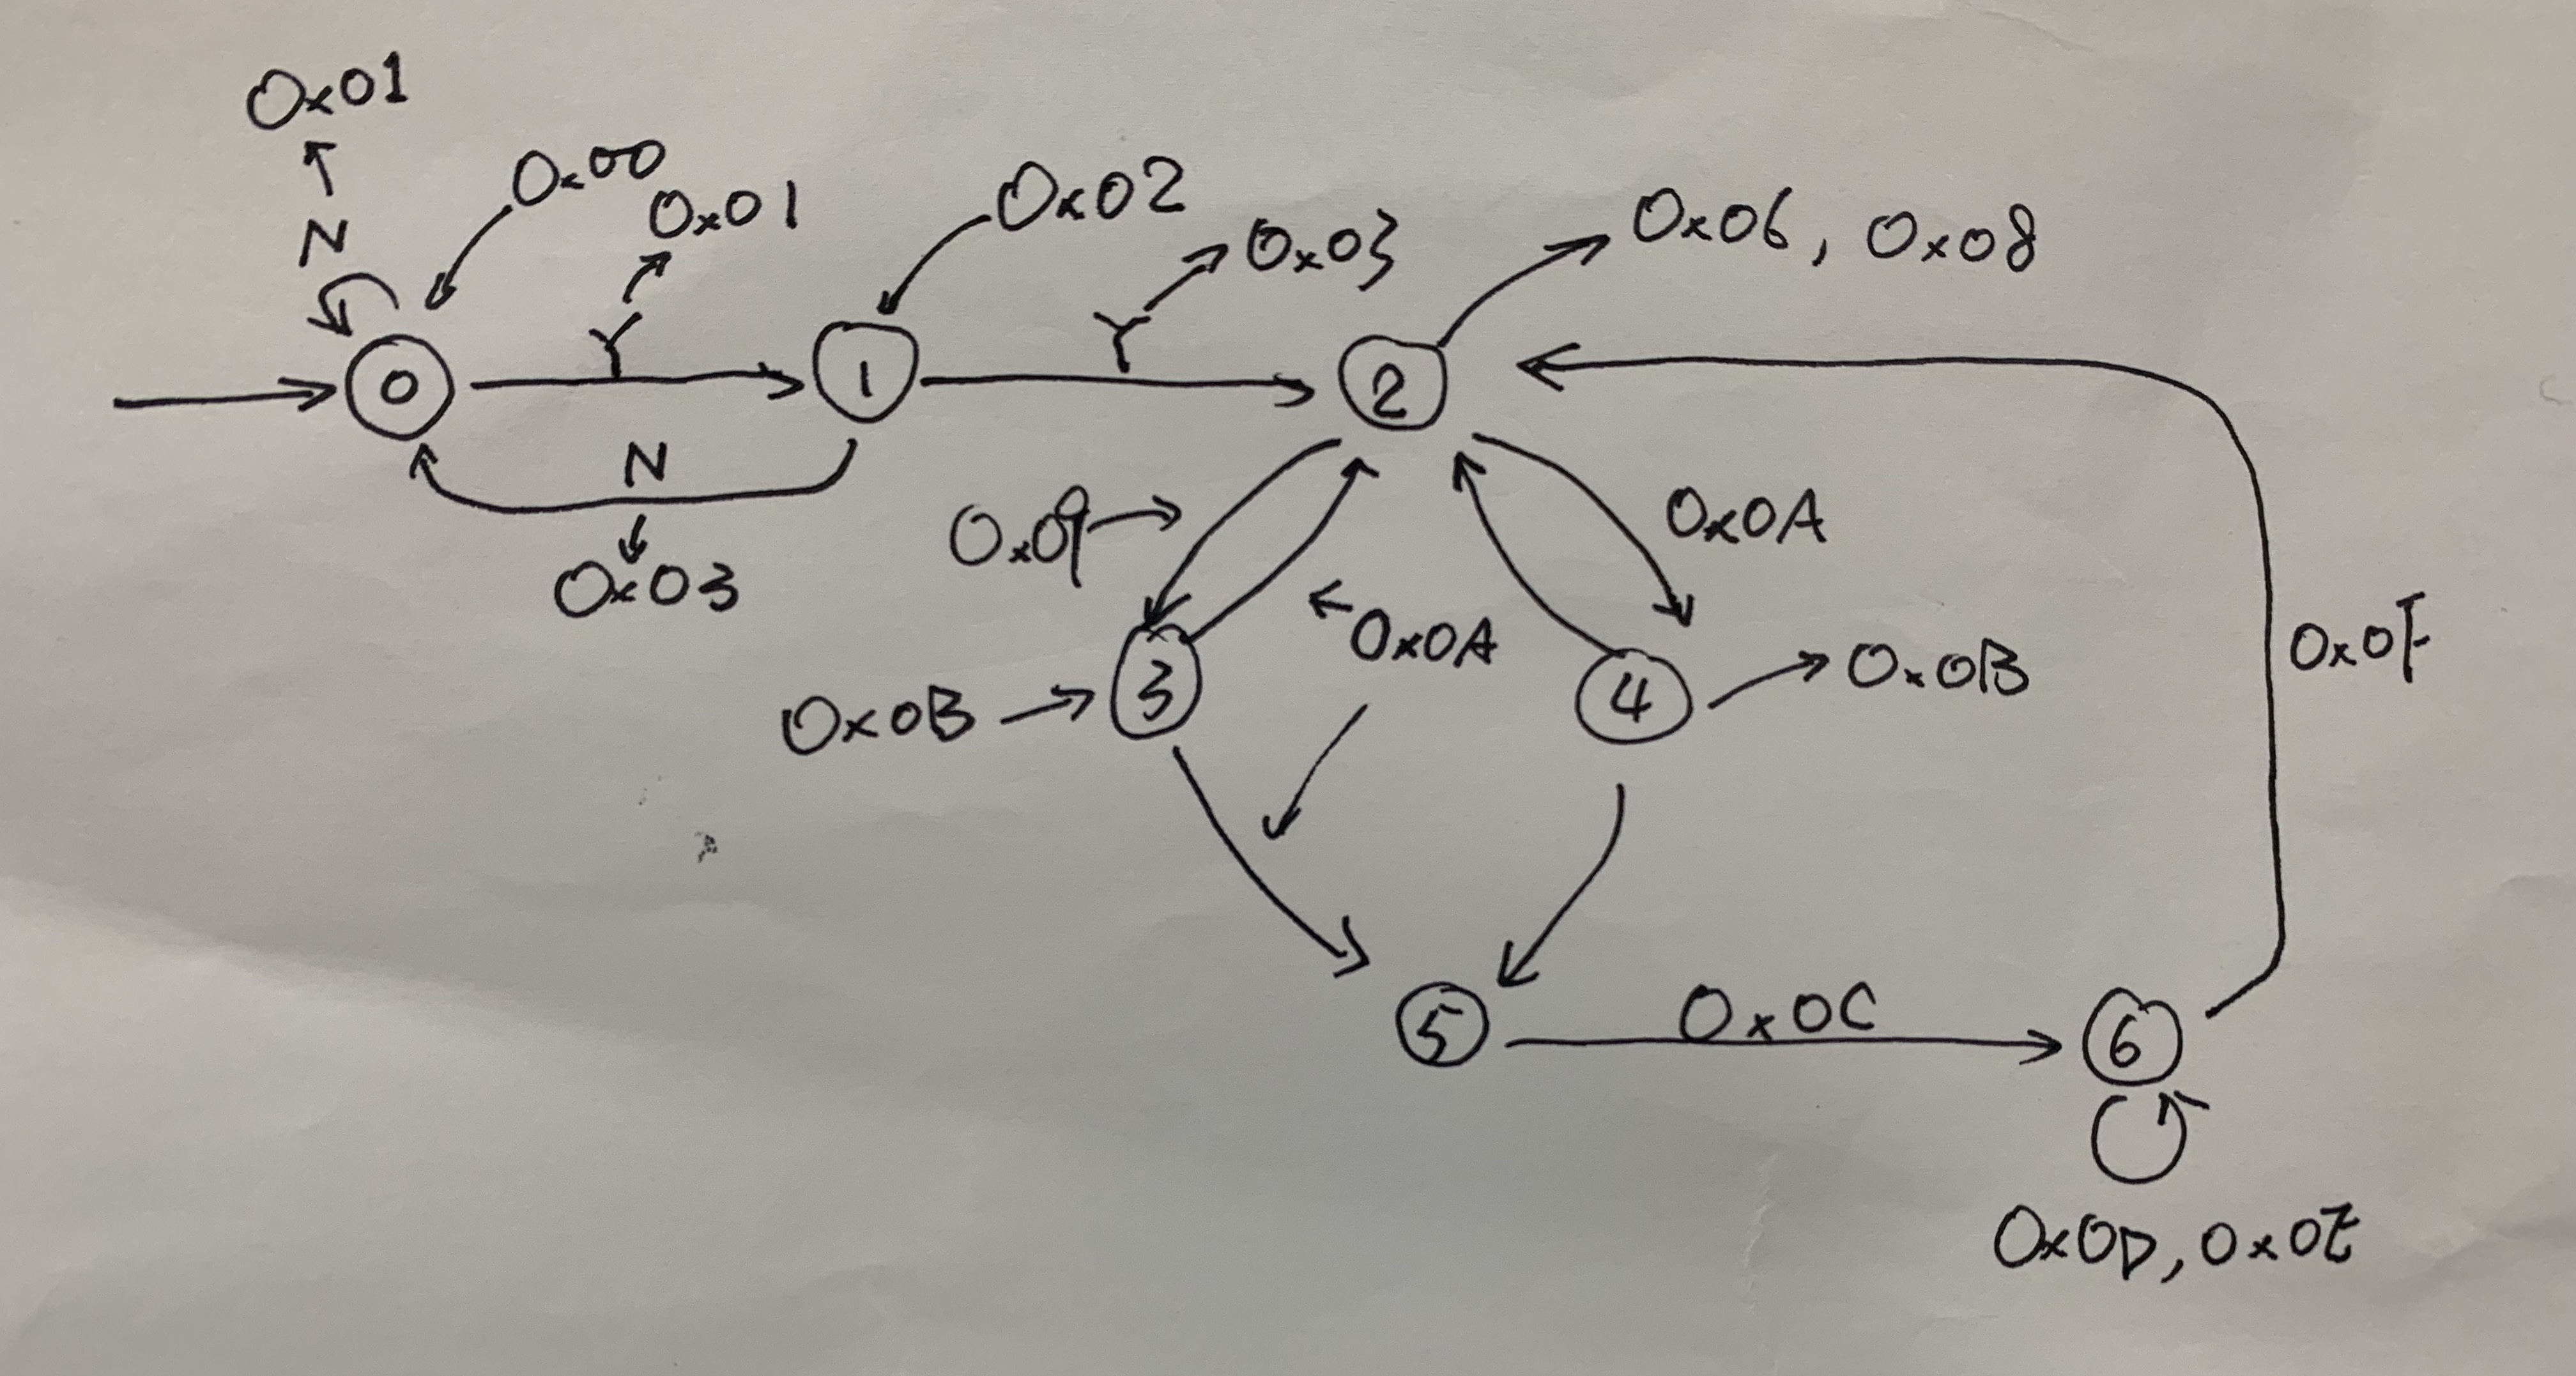 0x01
0x00
0x01
0x02
0x03
0x06, 0x08
N
Y
Y
0
1
2
N
0x03
0x09
0x0A
0x0A
0x0F
0x0B
3
4
0x0B
5
0x0C
6
0x0D, 0x0E